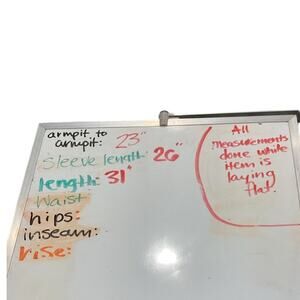 armpit to
armpit: 23"
Sleeve length: 26"
length: 31"
Waist
hips:
inseam:
rise:
All
measurements
done while
item is
laying
flat.